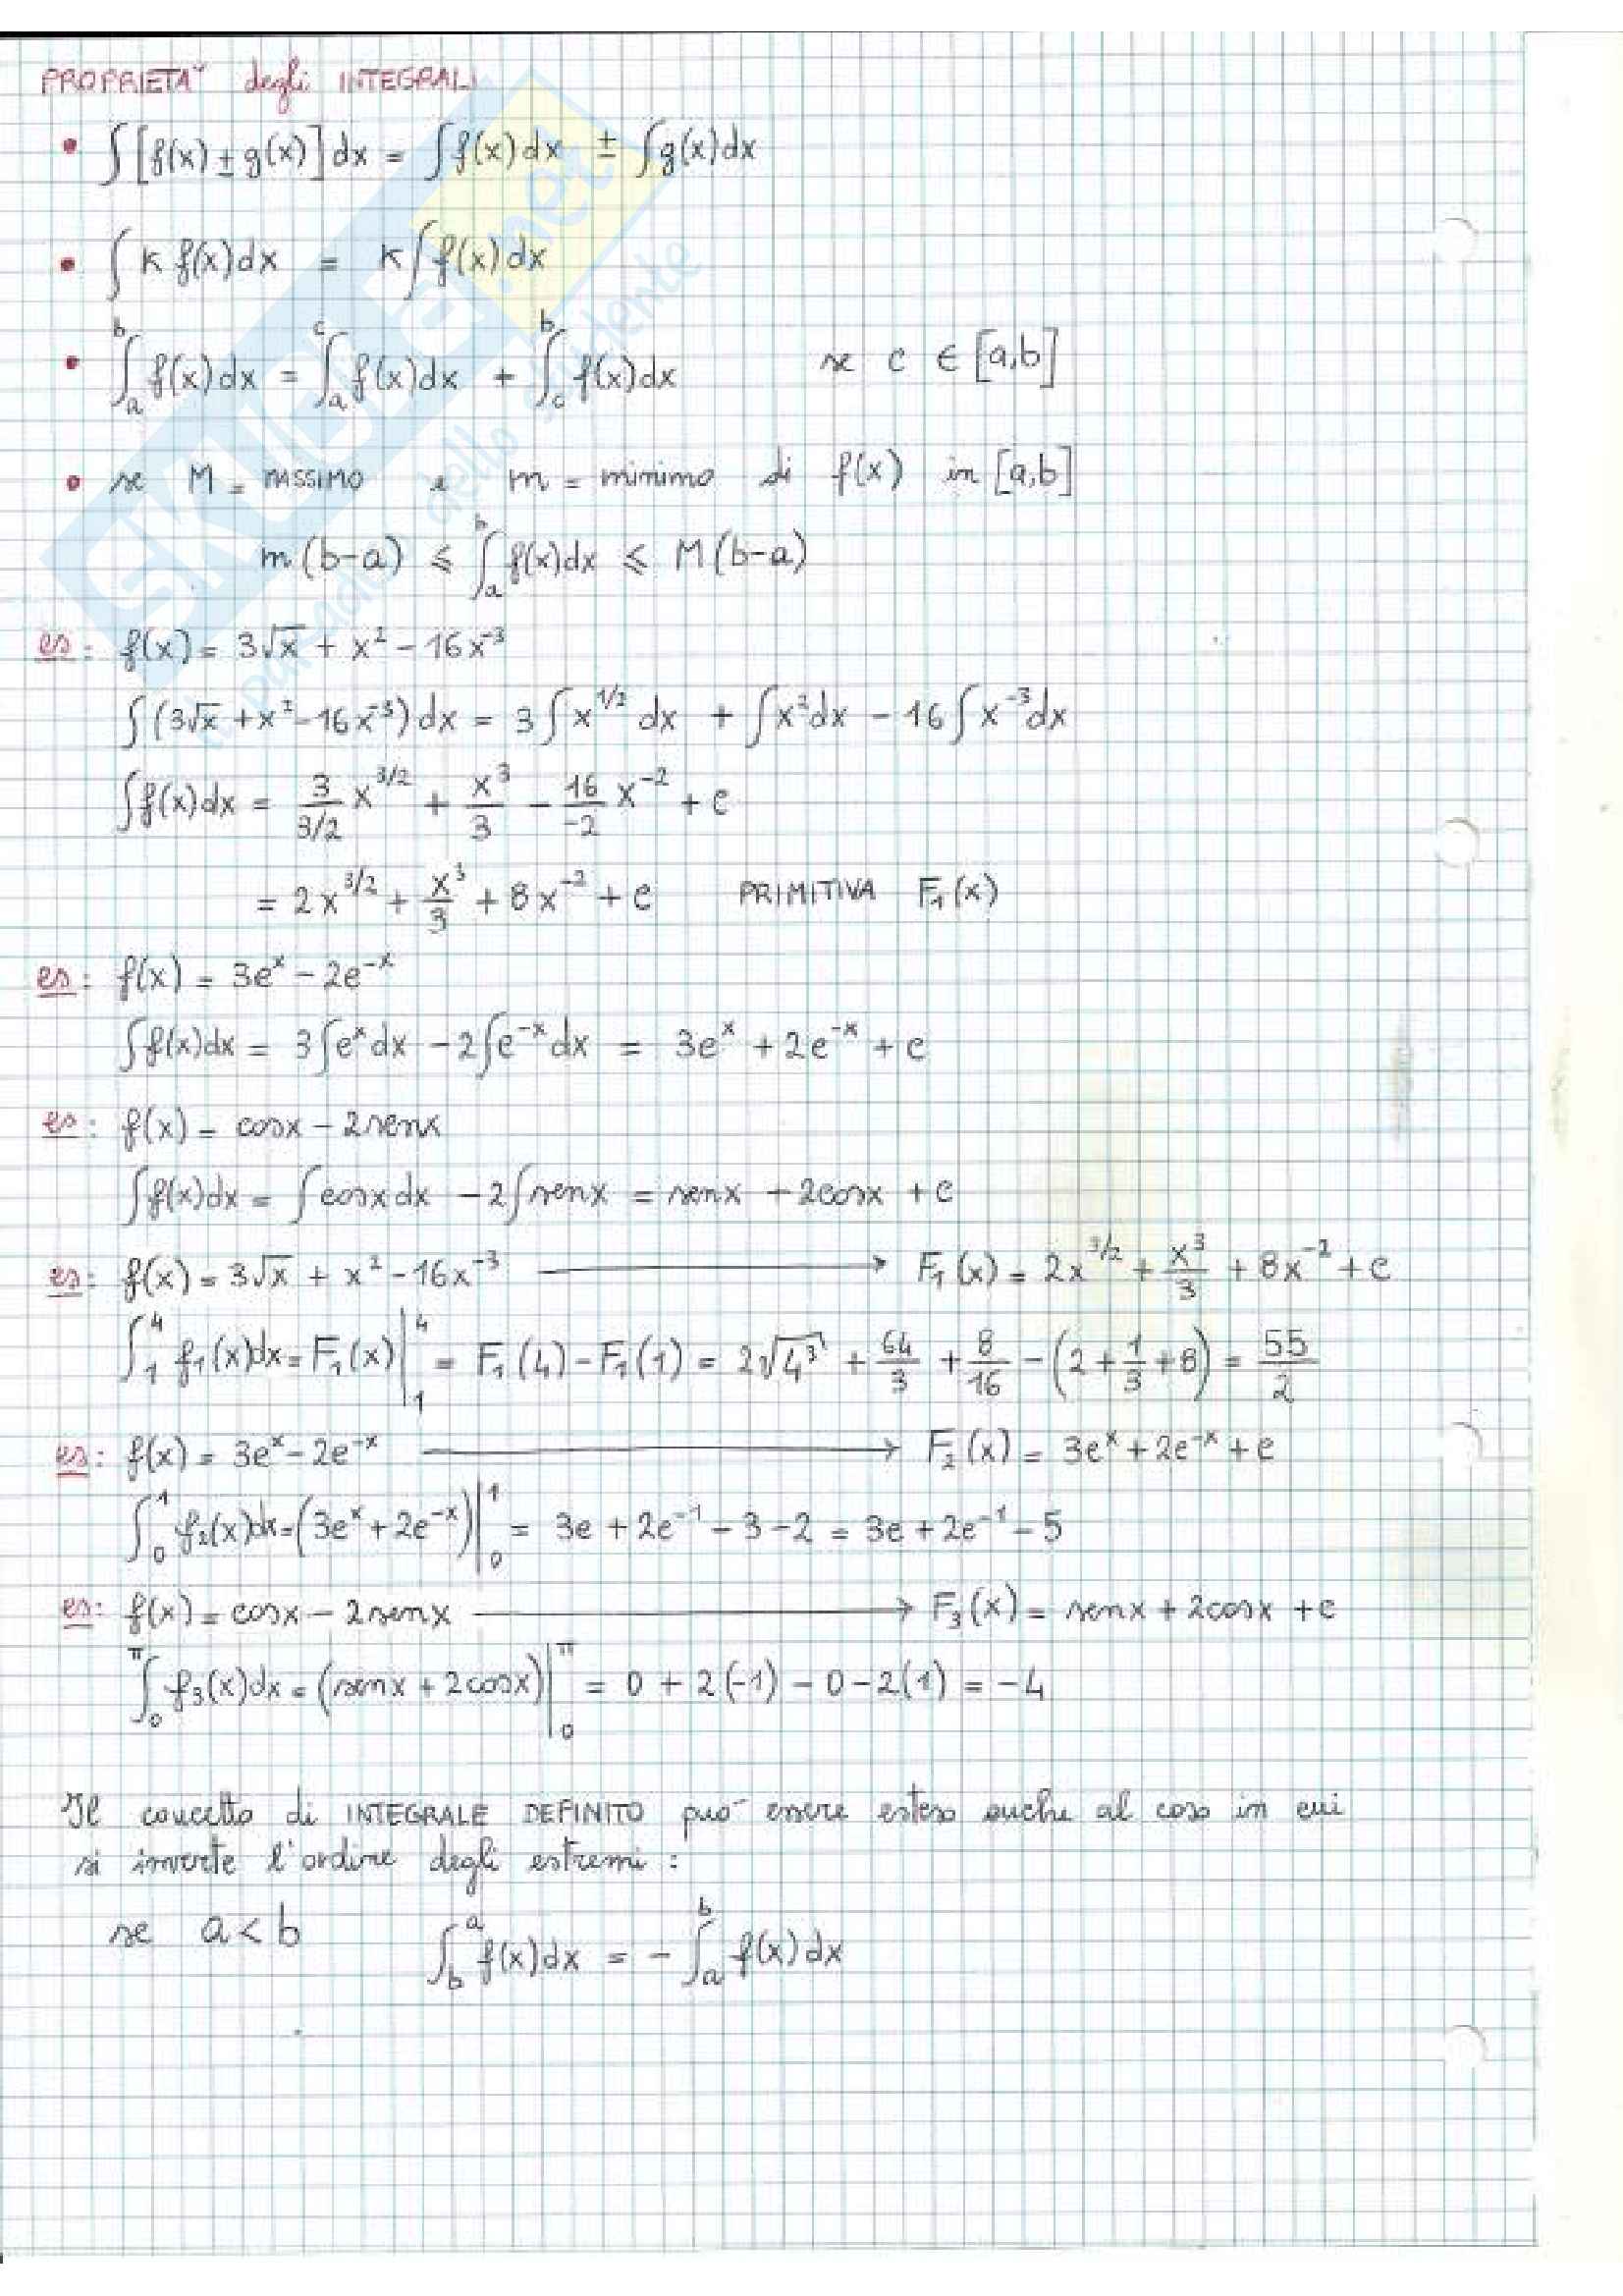 PROPRIETA' degli INTEGRALI
• ∫[f(x) ± g(x)]dx = ∫f(x)dx ± ∫g(x)dx
• ∫ K f(x)dx = K∫f(x)dx
• ∫_a^b f(x)dx = ∫_a^c f(x)dx + ∫_c^b f(x)dx se c ∈ [a,b]
• se M = MASSIMO e m = minimo di f(x) in [a,b]
m(b-a) ⩽ ∫_a^b f(x)dx ⩽ M(b-a)
es: f(x) = 3√x + x² - 16x⁻³
∫(3√x + x² - 16x⁻³)dx = 3∫x^{1/2} dx + ∫x²dx - 16∫x⁻³dx
∫f(x)dx = 3/(3/2) x^{3/2} + x³/3 - 16/-2 x⁻² + c
= 2x^{3/2} + x³/3 + 8x⁻² + c PRIMITIVA F₁(x)
es: f(x) = 3eˣ - 2e⁻ˣ
∫f(x)dx = 3∫eˣdx - 2∫e⁻ˣdx = 3eˣ + 2e⁻ˣ + c
es: f(x) = cosx - 2senx
∫f(x)dx = ∫cosxdx - 2∫senx = senx + 2cosx + c
es: f(x) = 3√x + x² - 16x⁻³ → F₁(x) = 2x^{3/2} + x³/3 + 8x⁻² + c
∫_1^4 f₁(x)dx = F₁(x)|_1^4 = F₁(4) - F₁(1) = 2√4³ + 64/3 + 8/16 - (2 + 1/3 + 8) = 55/2
es: f(x) = 3eˣ - 2e⁻ˣ → F₂(x) = 3eˣ + 2e⁻ˣ + c
∫_0^1 f₂(x)dx = (3eˣ + 2e⁻ˣ)|_0^1 = 3e + 2e⁻¹ - 3 - 2 = 3e + 2e⁻¹ - 5
es: f(x) = cosx - 2senx → F₃(x) = senx + 2cosx + c
∫_0^π f₃(x)dx = (senx + 2cosx)|_0^π = 0 + 2(-1) - 0 - 2(1) = -4
Il concetto di INTEGRALE DEFINITO può essere esteso anche al caso in cui
si inverte l'ordine degli estremi:
se a < b ∫_b^a f(x)dx = - ∫_a^b f(x)dx
SKUOLA.net
il paradiso dello studente